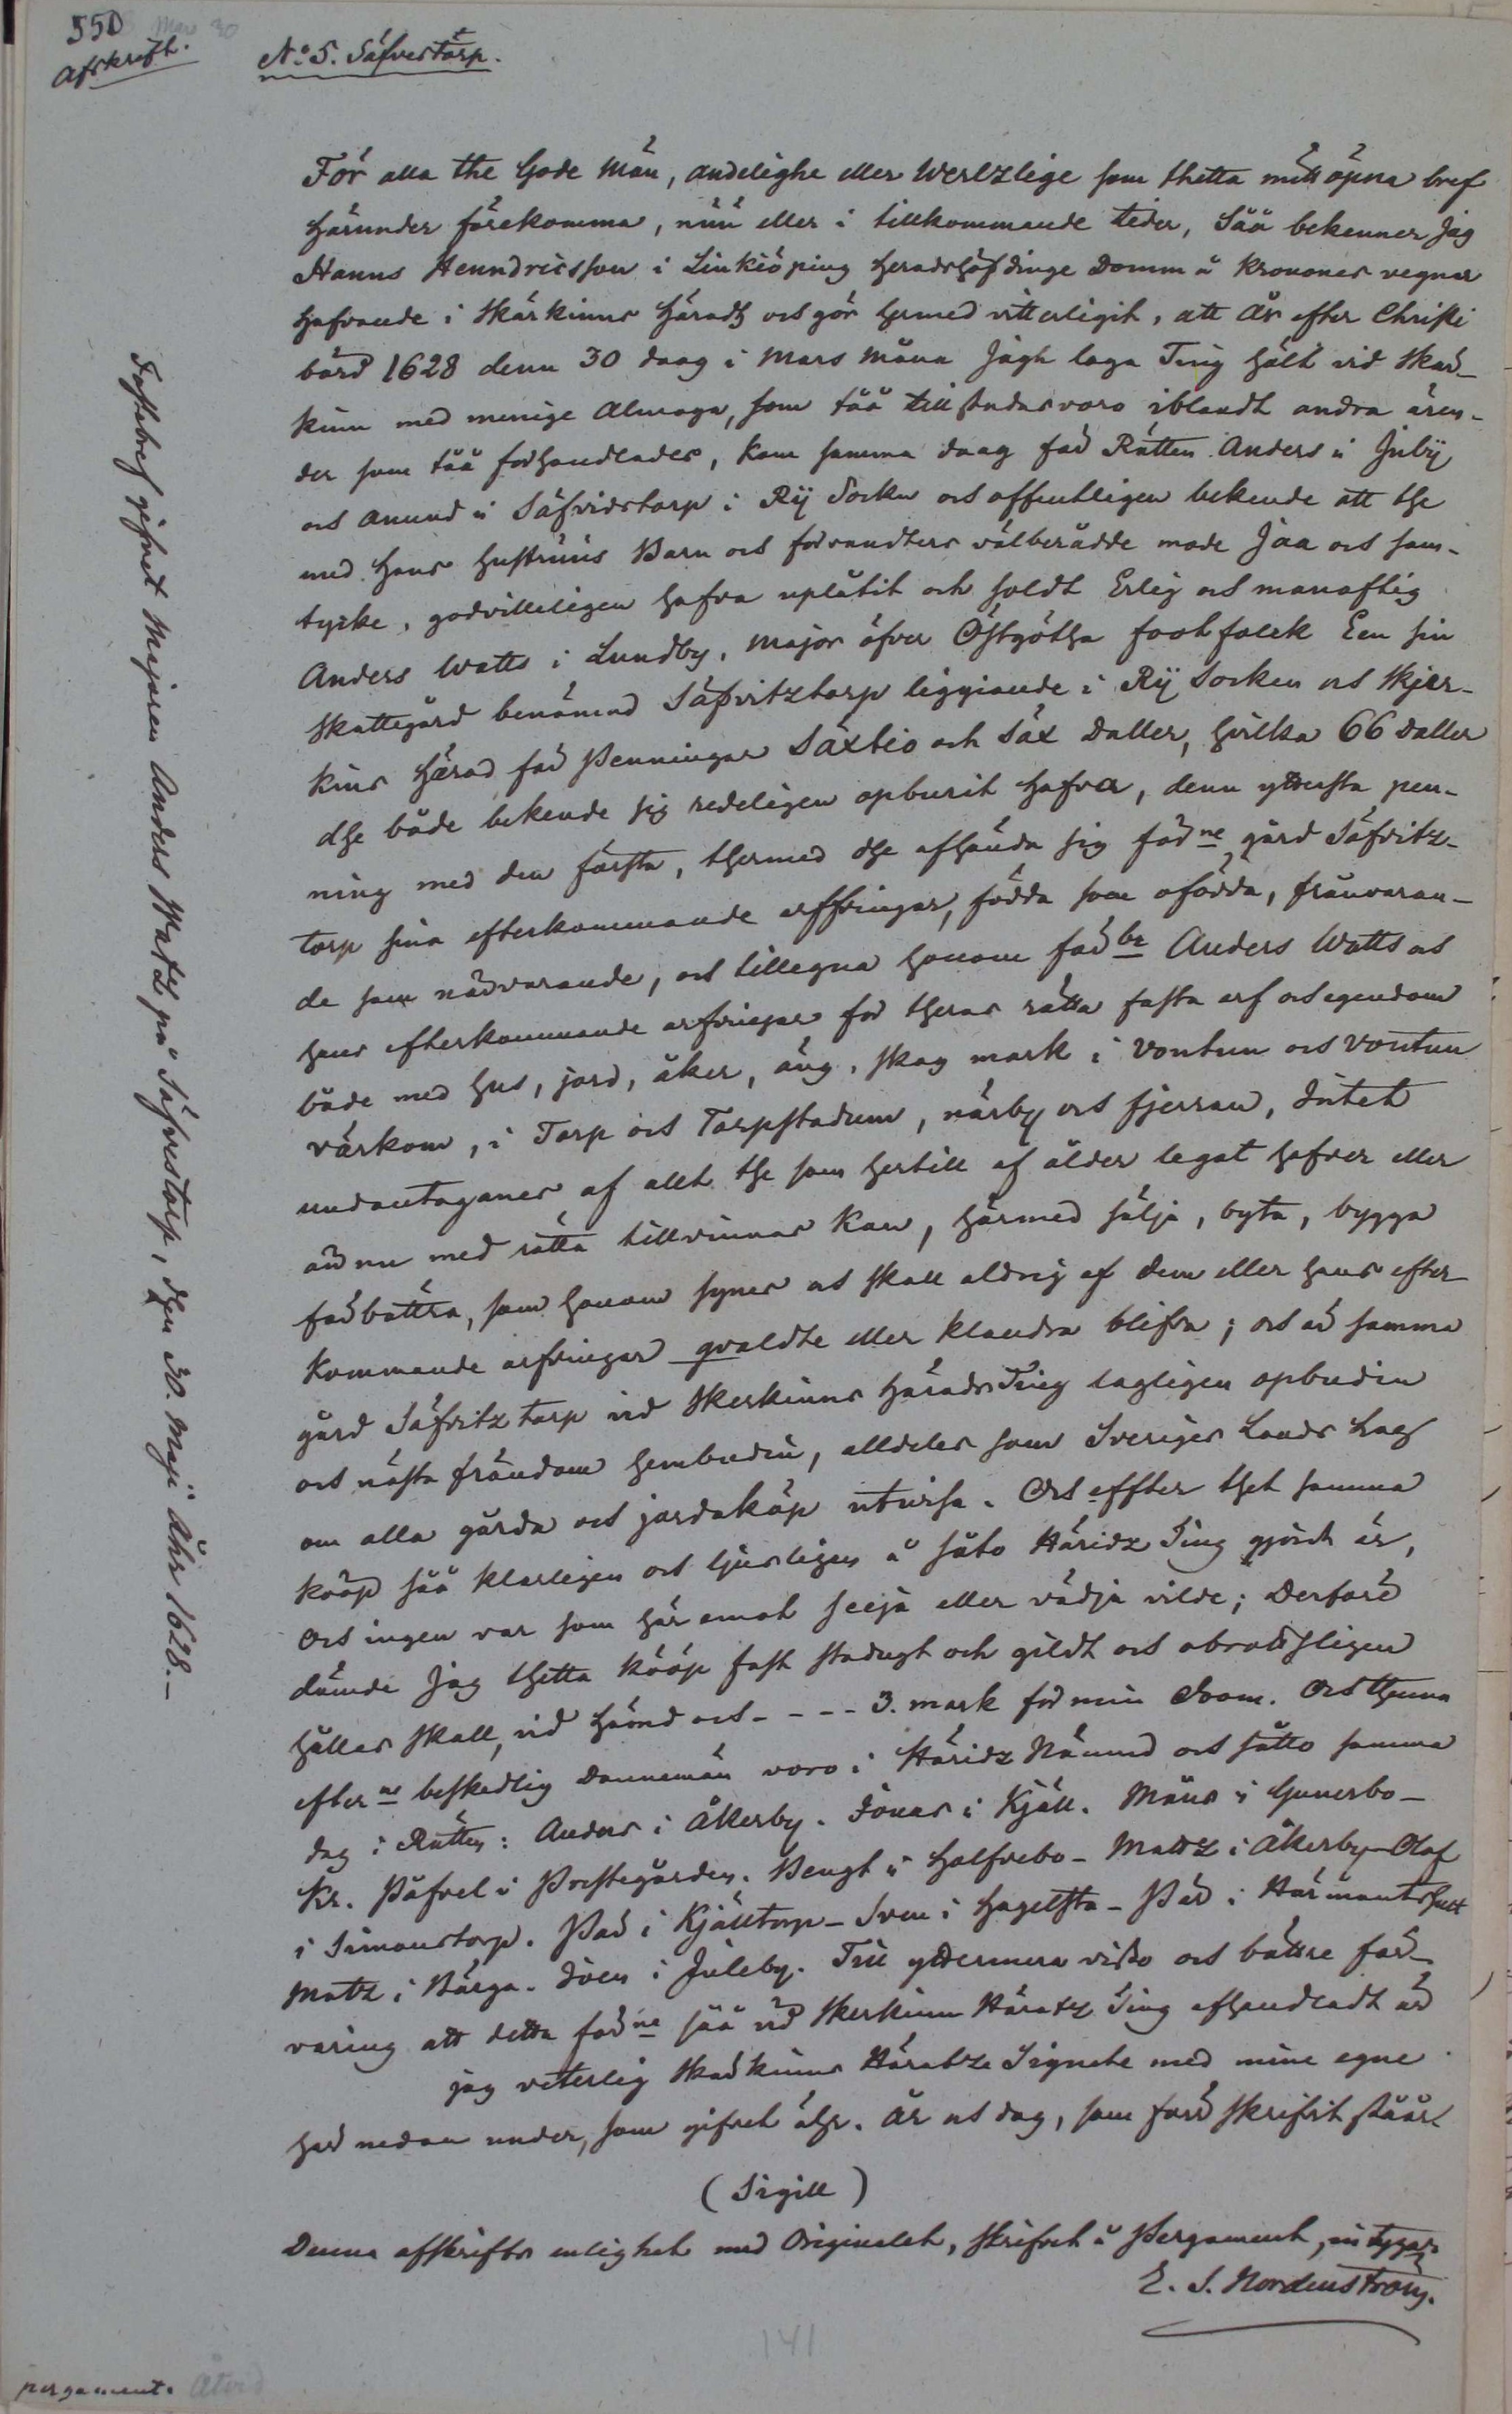 550
Afskrift.
Mars 30
No 5. Säfvestorp.
För alla the Gode Män, andelighe eller Werlzlige som thetta mitt öpna bref
härunder förekomma, nüü eller i tillkommande tider, Såå bekenner Jag
Hanns Henndricsson i Linkiöping heradshöfdinge Domm å kronones vegnar
hafvande i Skärkinns häradh och gör hermed vitterligit, att År efter Christi
börd 1628 denn 30 daag i Mars Måna Jagh laga Ting hölt vid Skär-
kinn med menige Almoga, som tåå tillstädes voro iblandt andra ären-
der som tåå förhandlades, kom samma daag för Rätten Anders i Julby
och Amund i Säfvidstorp i Rÿ Sockn och offentligen bekende att the
med hans hustruus Barn och förvandters välberådde mode Jaa och sam-
tycke, godvilleligen hafva uplåtit och soldt Erlig och manaftig
Anders Watts i Lundby, Major öfver Östgötha footfolck Een sin
Skattegård benämnd Säfvitztorp liggiande i Rÿ Socken och Skjer-
kins härad för Penningar Säxtio och Säx Daller, hvilka 66 daller
dhe både bekende sig redeligen opburit hafva, denn ytterste pen-
ning med den första, thermed dhe afhända sig förne gård Säfvitz-
torp sina efterkommande arffvingar, födda som ofödda, frånvaran-
de som närvarande, och tillegna honom förbe Anders Watts och
hans efterkommande arfvingar för theras rätta fasta arf och egendom
både med hus, jord, åker, äng, skog mark i vontun och vontun
värkom, i Torp och Torpstadum, närby och fjerran, Intet
undantaganes af allt the som hertill af ålder legat hafver eller
ännu med rätta tillvinnas kan, härmed sälja, byta, bygga
förbättra, som honom synes och skall aldrig af dem eller hans efter-
kommande arfvingar qvaldte eller klandra blifva; och är samma
gård Säfvitztorp vid Skerkinns häradsTing lagligen opbudin
och nästa frändom hembudin, alldeles som Sveriges Lands Lag
om alla gårda och jordaköp utvisa. Och effter thet samma
kööp såå klarligen och ljusligen å såto Häridz Ting gjordt är,
och ingen var som här emot seeja eller vädja vilde; Derföre
dömde Jag thetta kööp fast stadugt och gildt och obrottsligen
hållas skall, vid händ och - - - - 3. mark för min Doom. Och thenna
efterne beskedlig Dannemän voro i Häridz Nämnd och såtto samma
dag i Rätten: Anders i Åkerby. Jönas i Kjäll. Måns i Gunerbo-
Kr. Påfvel i Prestegården. Bengt i Halfvebo- Mattz i Åkerby-Olof
i Simonstorp. Pär i Kjälltorp- Sven i Hagelsta- Pär i
Matz i Bärga. Sven i Juleby. Till yttermera visso och bättre för-
varing att detta förne såå vid Skerkinn Häratz Ting afhandladt är
jag veterlig Skärkinns Häratze Signete med mine egne
her nedan under, som gifvet är. År och dag, som förr skrifvit ståår.
(Sigill)
Denna afskrifts enlighet med Originalet, skrifvet å Pergament, intygar
E. S. Nordenström.
Fastebref gifvet Majoren Anders Watz på Säfvestorp, dhen 30. Maji Åhr 1628.-
141
pergament.
Återd